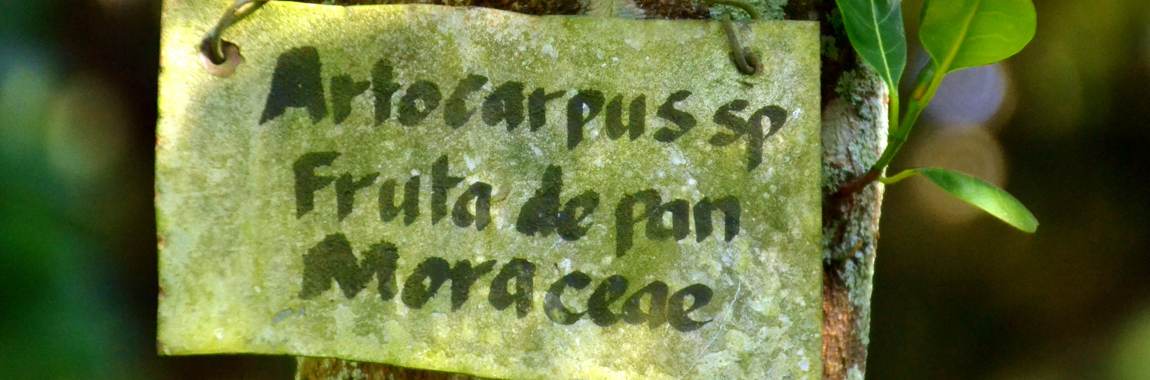 Artocarpus sp
Fruta de pan
Moraceae